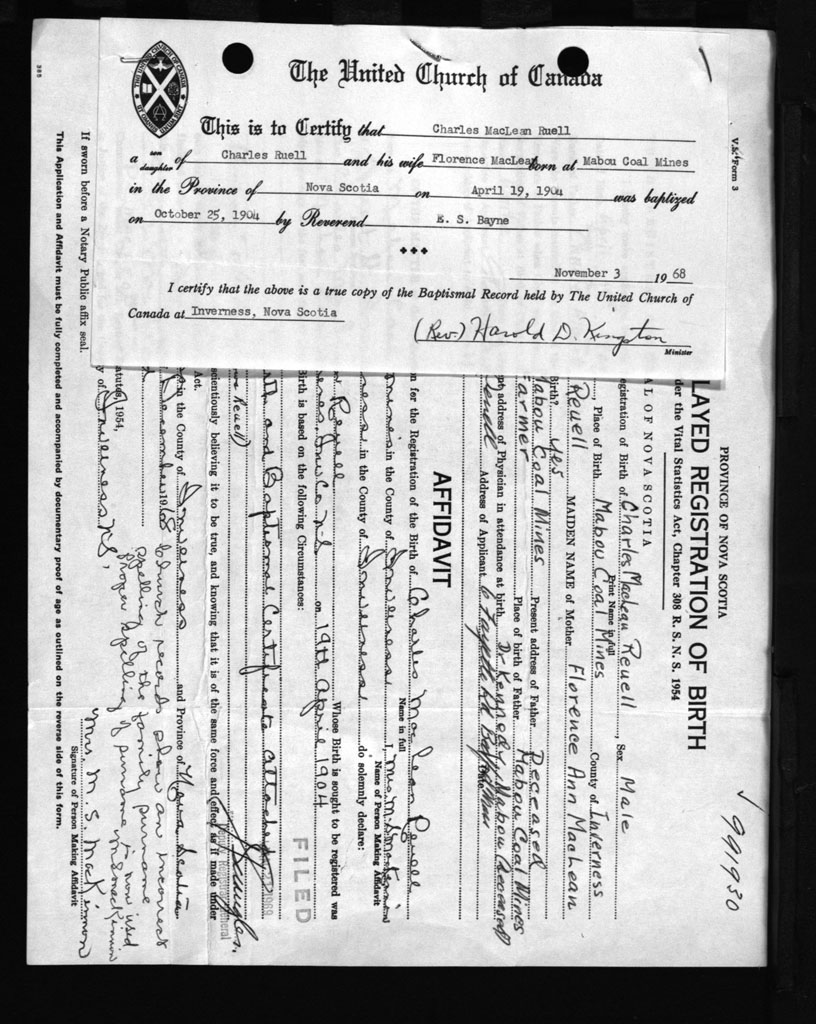 The United Church of Canada
This is to Certify that Charles MacLean Ruell
a son daughter of Charles Ruell and his wife Florence MacLean born at Mabou Coal Mines
in the Province of Nova Scotia on April 19, 1904 was baptized
on October 25, 1904 by Reverend E. S. Bayne
November 3 1968
I certify that the above is a true copy of the Baptismal Record held by The United Church of
Canada at Inverness, Nova Scotia
(Rev) Harold D. Kingston
Minister
V.S. Form 3
991930
PROVINCE OF NOVA SCOTIA
LAYED REGISTRATION OF BIRTH
der the Vital Statistics Act, Chapter 308 R. S. N. S. 1954
AL OF NOVA SCOTIA
egistration of Birth of Charles MacLean Reuell, Sex Male
Print Name in full
, Place of Birth Mabou Coal Mines County of Inverness
Reuell MAIDEN NAME of Mother Florence Ann MacLean
Birth? Yes
Mabou Coal Mines Present address of Father Deceased
armer Place of birth of Father Mabou Coal Mines
address of Physician in attendance at birth Dr Kennedy, Mabou
Address of Applicant
AFFIDAVIT
n for the Registration of the Birth of Charles Mac Lean Reuell
Name in full
in the County of Inverness I, Mrs M. S. MacKinnon
Name of Person Making Affidavit
in the County of Inverness do solemnly declare:
Reuell Whose Birth is sought to be registered was
on 19th April 1904
Birth is based on the following Circumstances:
FILED
and Baptismal Certificate attached
1969
Reuell)
scientiously believing it to be true, and knowing that it is of the same force and effect as if made under
Act.
in the County of Inverness and Province of Nova Scotia
December 1968
Church records show an incorrect
spelling of the family surname
Proper spelling of surname is now used
tatutes, 1954,
y of Inverness N.S.
Mrs. M. S. MacKinnon
Signature of Person Making Affidavit
If sworn before a Notary Public affix seal.
This Application and Affidavit must be fully completed and accompanied by documentary proof of age as outlined on the reverse side of this form.